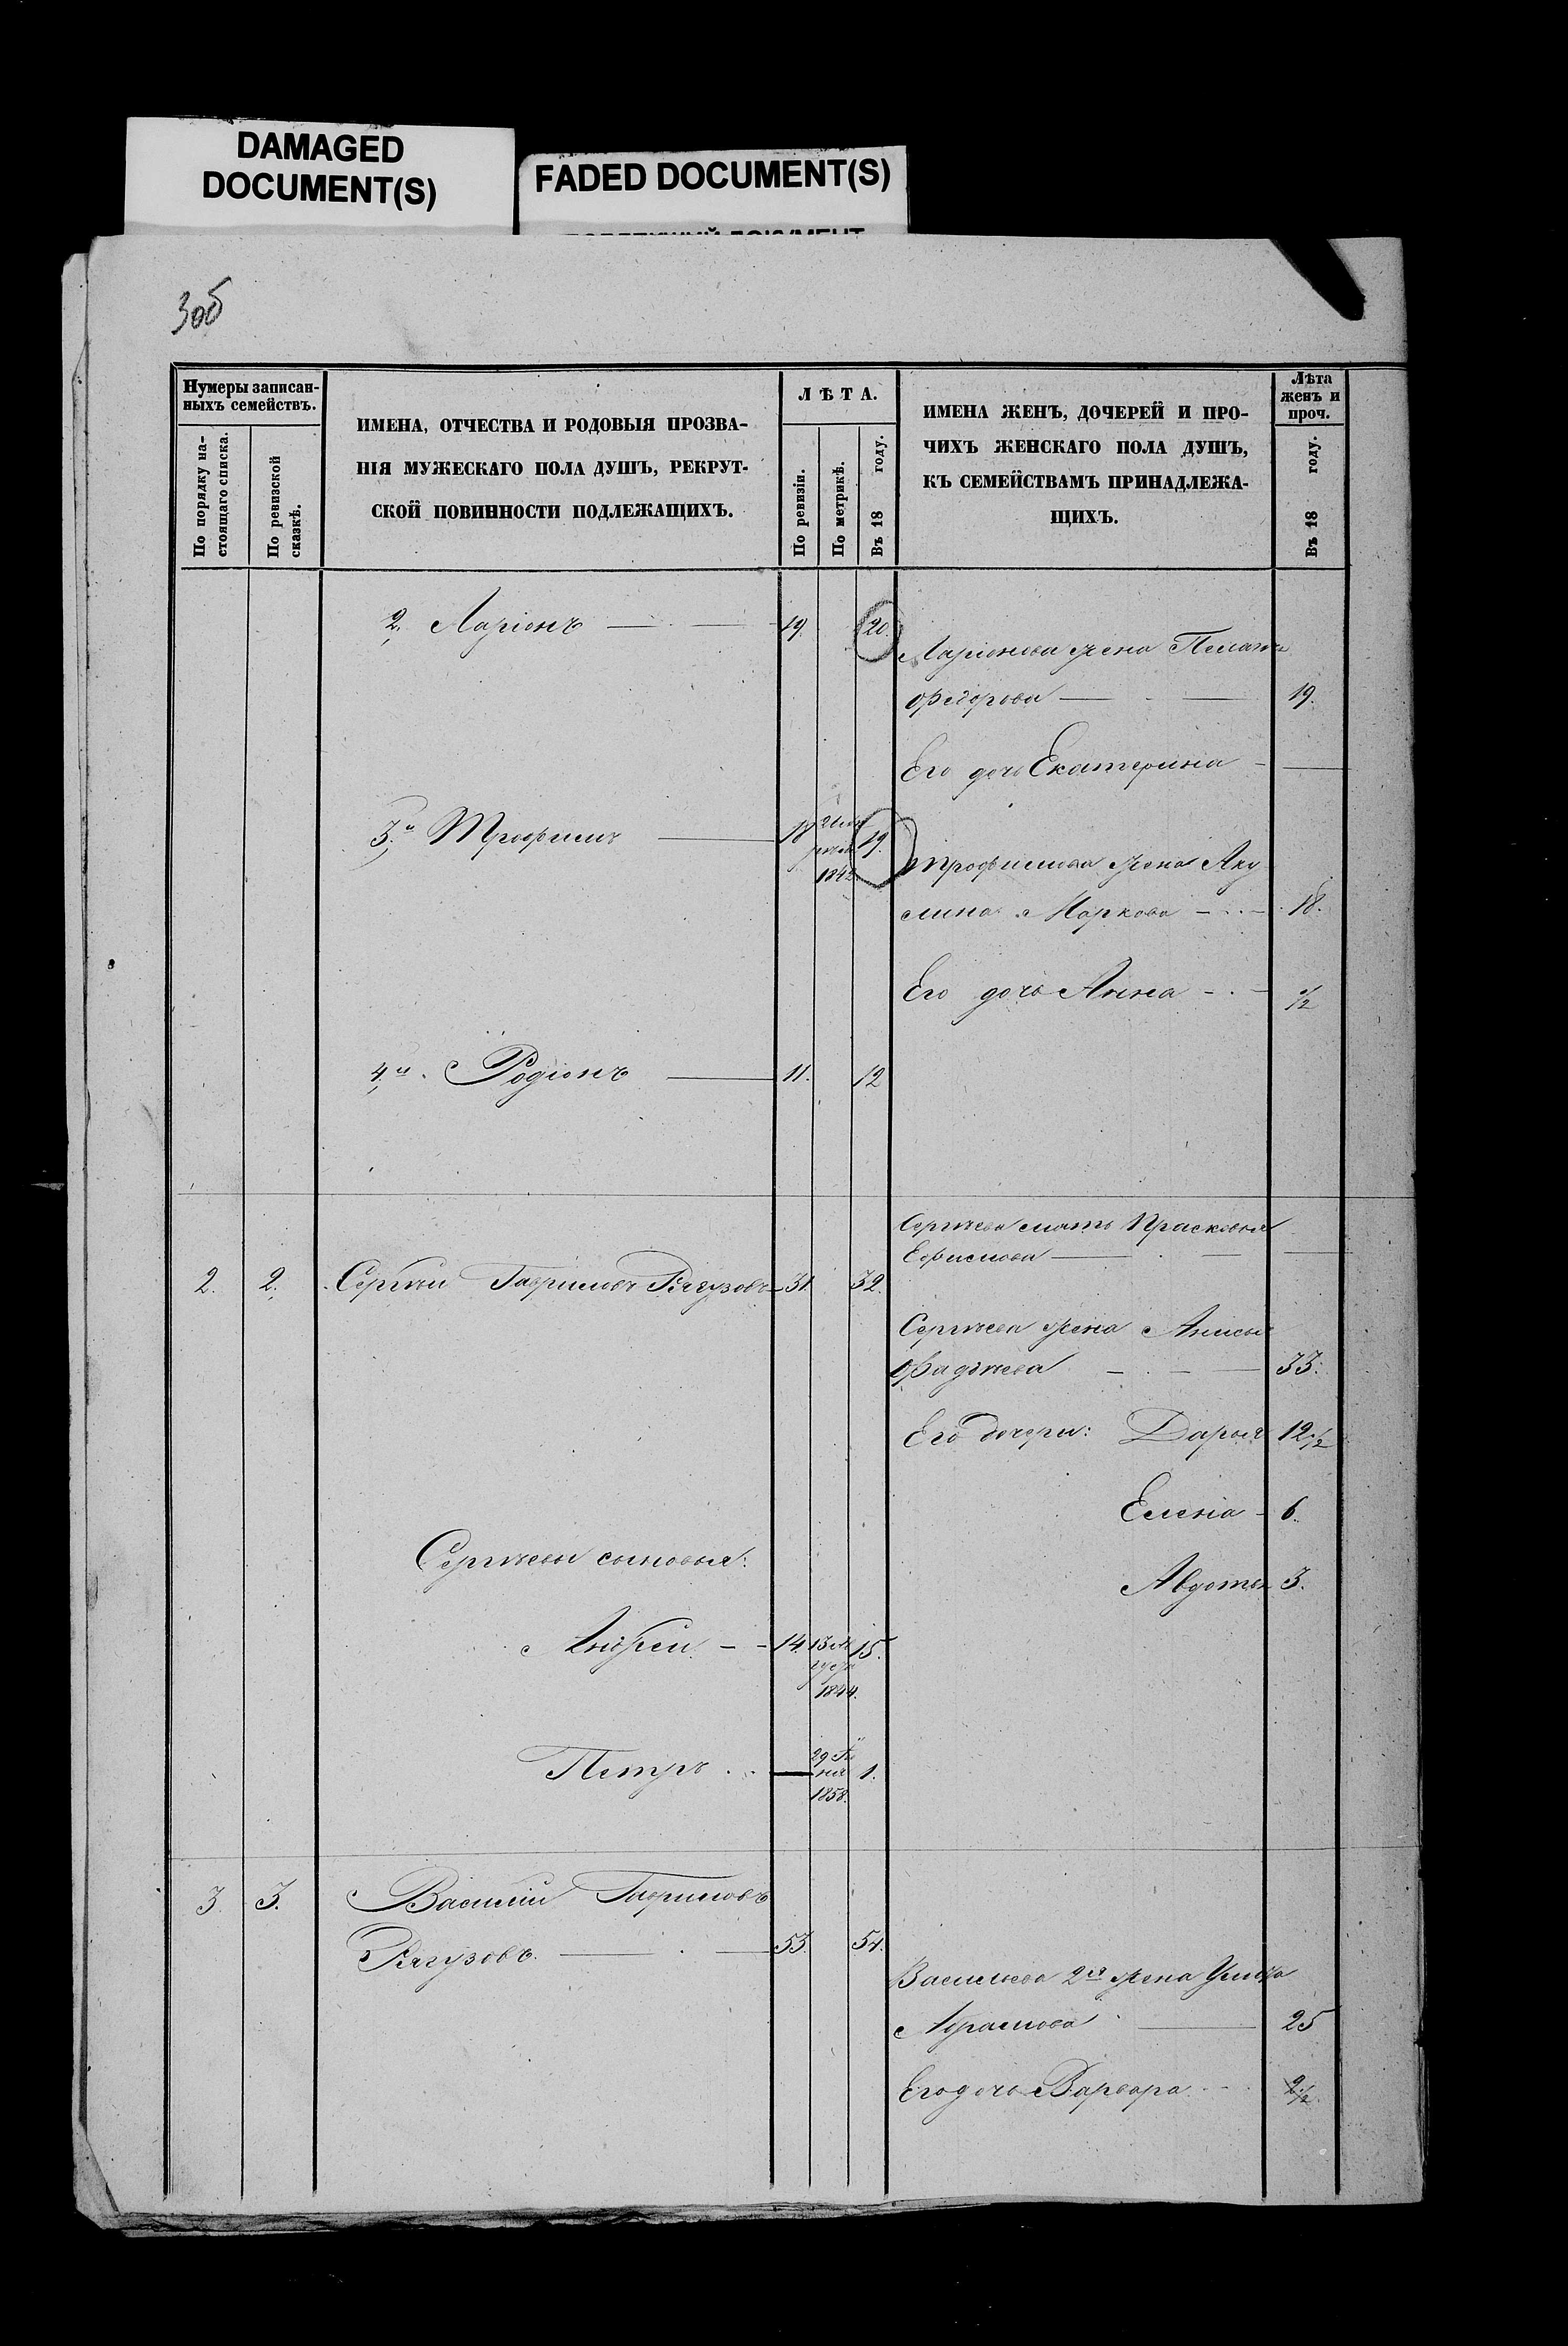 DAMAGED
DOCUMENT(S)
FADED DOCUMENT(S)
30б
Нумеры записан-
ныхъ семействъ.
По порядку на-
стоящаго списка.
По ревизской
сказкѣ.
ИМЕНА, ОТЧЕСТВА И РОДОВЫЯ ПРОЗВА-
НІЯ МУЖЕСКАГО ПОЛА ДУШЪ, РЕКРУТ-
СКОЙ ПОВИННОСТИ ПОДЛЕЖАЩИХЪ.
ЛѢТА.
По ревизіи.
По метрикѣ.
Въ 18 году.
ИМЕНА ЖЕНЪ, ДОЧЕРЕЙ И ПРО-
ЧИХЪ ЖЕНСКАГО ПОЛА ДУШЪ,
КЪ СЕМЕЙСТВАМЪ ПРИНАДЛЕЖА-
ЩИХЪ.
Лѣта
женъ и
проч.
Въ 18 году.
2. Ларіонъ — 19. 20.
Ларіонова жена Пелагея
Федорова — 19.
Его дочь Екатерина — —
3й Трофимъ — 18 1842 19.
Трофимова жена Аку
лина Маркова — 18.
Его дочь Анна — 1/2
4й Родіонъ — 11. 12
Сергѣева мать Прасковья
Ефимова — —
2. 2. Сергѣй Гавриловъ 31. 32.
Сергѣева жена Анисья
Фадѣева — 33.
Его дочери: Дарья 12 1/2
Елена - 6.
Сергѣевы сыновья:
Авдотья 3.
Андрей - - 14 13 Ав
густа
1844. 15.
Петръ — 29 Iю
ня
1858. 1.
3. 3. Василій Гавриловъ
— 53. 54.
Васильева 2я жена Улья
Абрамова — 25
Его дочь Варвара 2 1/2